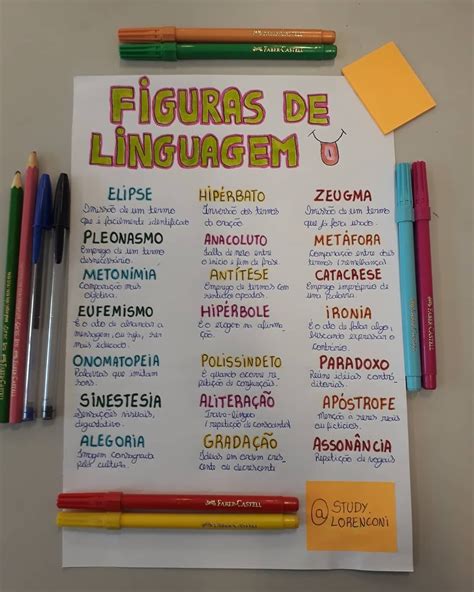 FABER-CASTELL
FIGURAS DE
LINGUAGEM
ELIPSE
Omissão de um termo
que é facilmente identificado
HIPÉRBATO
Inversão dos termos
da oração
ZEUGMA
Omissão de um termo
que já fora usado
PLEONASMO
Emprego de um termo
desnecessário
ANACOLUTO
Falta de nexo entre
o início e fim da frase
METÁFORA
Comparação entre dois
termos (semelhança)
METONÍMIA
Comparação mais
objetiva
ANTÍTESE
Emprego de termos com
sentidos opostos
CATACRESE
Emprego impróprio de
uma palavra
EUFEMISMO
É o ato de
mensagem, ou seja, ser
mais educado
HIPÉRBOLE
É o exagero na afirma-
ção
IRONIA
É o ato de falar algo,
buscando expressar o
contrário
ONOMATOPEIA
Palavras que imitam
sons
POLISSINDETO
É quando ocorre re-
petição de conjunções
PARADOXO
Reúne ideias contra-
ditórias
SINESTESIA
Sensações visuais,
degustativas
ALITERAÇÃO
Trava-língua
(repetição de consoantes)
APÓSTROFE
Menção a seres reais
ou fictícios
ALEGORIA
Imagem consagrada
pela cultura
GRADAÇÃO
Ideias em ordem cres-
cente ou decrescente
ASSONÂNCIA
Repetição de vogais
FABER-CASTELL
FABER-CASTELL
@STUDY.
LORENCONI